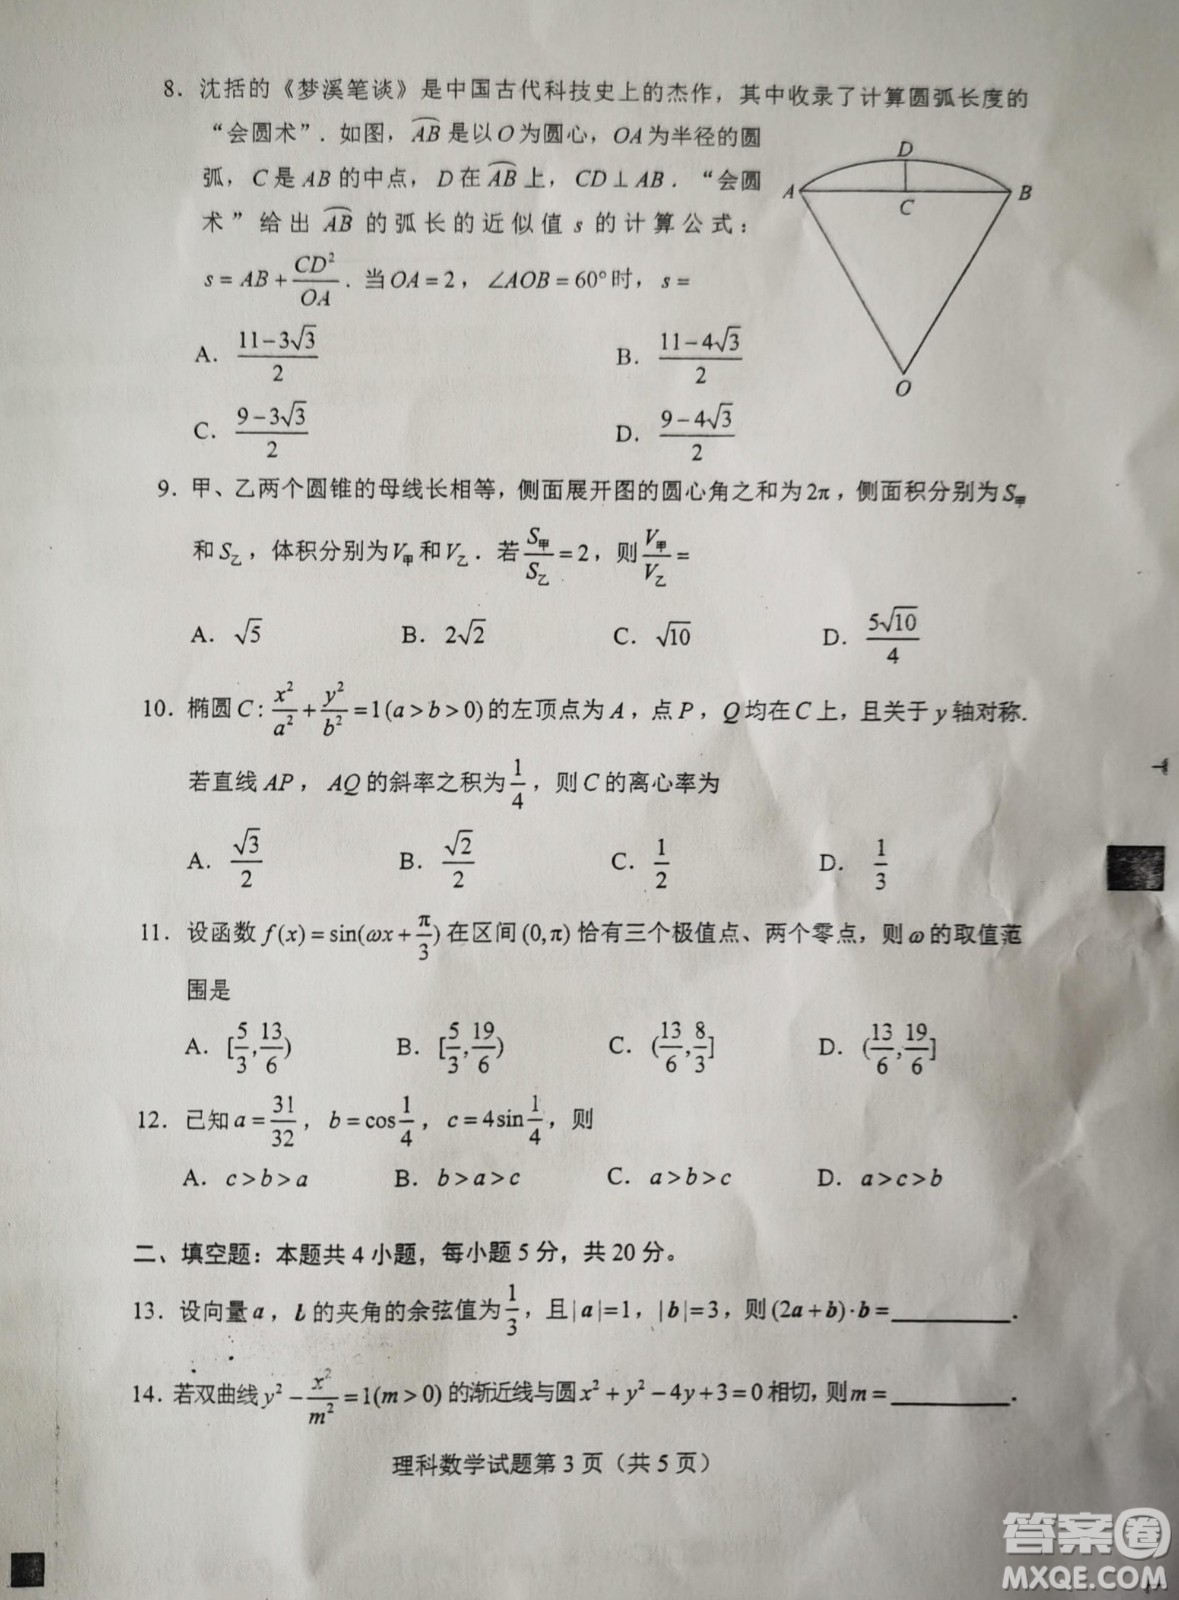 8. 沈括的《梦溪笔谈》是中国古代科技史上的杰作，其中收录了计算圆弧长度的
“会圆术”．如图，$\overset{\frown}{AB}$ 是以O为圆心，OA为半径的圆
弧，C是AB的中点，D在$\overset{\frown}{AB}$上，CD⊥AB．“会圆
术”给出$\overset{\frown}{AB}$的弧长的近似值s的计算公式：
$s=AB+\frac{CD^2}{OA}$．当OA=2，∠AOB=60°时，s=
A. $\frac{11-3\sqrt{3}}{2}$ B. $\frac{11-4\sqrt{3}}{2}$
C. $\frac{9-3\sqrt{3}}{2}$ D. $\frac{9-4\sqrt{3}}{2}$
D
A
C
B
O
9. 甲、乙两个圆锥的母线长相等，侧面展开图的圆心角之和为2π，侧面积分别为$S_甲$
和$S_乙$，体积分别为$V_甲$和$V_乙$．若$\frac{S_甲}{S_乙}=2$，则$\frac{V_甲}{V_乙}=$
A. $\sqrt{5}$ B. $2\sqrt{2}$ C. $\sqrt{10}$ D. $\frac{5\sqrt{10}}{4}$
10. 椭圆$C:\frac{x^2}{a^2}+\frac{y^2}{b^2}=1(a>b>0)$的左顶点为A，点P，Q均在C上，且关于y轴对称.
若直线AP，AQ的斜率之积为$\frac{1}{4}$，则C的离心率为
A. $\frac{\sqrt{3}}{2}$ B. $\frac{\sqrt{2}}{2}$ C. $\frac{1}{2}$ D. $\frac{1}{3}$
11. 设函数$f(x)=\sin(\omega x+\frac{\pi}{3})$在区间(0,π)恰有三个极值点、两个零点，则ω的取值范
围是
A. $[\frac{5}{3},\frac{13}{6})$ B. $[\frac{5}{3},\frac{19}{6})$ C. $(\frac{13}{6},\frac{8}{3}]$ D. $(\frac{13}{6},\frac{19}{6}]$
12. 已知$a=\frac{31}{32}$，$b=\cos\frac{1}{4}$，$c=4\sin\frac{1}{4}$，则
A. c>b>a B. b>a>c C. a>b>c D. a>c>b
二、填空题：本题共4小题，每小题5分，共20分。
13. 设向量a，b的夹角的余弦值为$\frac{1}{3}$，且|a|=1，|b|=3，则(2a+b)·b=__________.
14. 若双曲线$y^2-\frac{x^2}{m^2}=1(m>0)$的渐近线与圆$x^2+y^2-4y+3=0$相切，则m=__________.
理科数学试题第3页（共5页）
答案圈
MXQE.COM